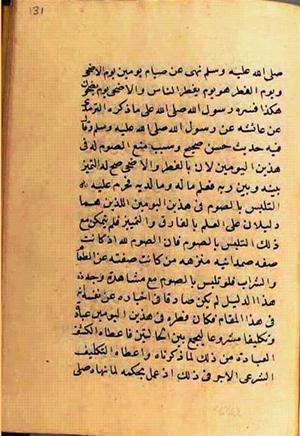 131
صلى الله عليه وسلم نهى عن صيام يومين يوم الاضحى
ويوم الفطر هو يوم يفطر الناس والاضحى يوم يضحون
هكذا فسره رسول الله صلى الله على ما ذكره الترمذى
عن عائشه عن رسول الله صلى الله عليه وسلم وقال
فيه حديث حسن صحيح وسبب منع الصوم له فى
هذين اليومين لان بالفطر والاضحى صح له التميز
بينه وبين ربه فعلم ماله وما لربه فحرم عليه
التلبس بالصوم فى هذين اليومين اللذين هما
دليلان على العلم بالفارق والتمييز فلم يتمكن مع
ذلك التلبس بالصوم فان الصوم لله اذ كانت
صفه صمدانيه منزهه من كانت صفته عن الطعام
والشراب فلو تلبس بالصوم مع مشاهدة وجه
هذا الدليل لم يكن صادقا فى اخباره عن نفسه انه
فى هذا المقام فكان فطره فى هذين اليومين عبادة
وتكليفا مشروعا ليجمع بين الحالتين فاعطاه الكشف
العبادة من ذلك لما ذكرناه واعطاه التكليف
الشرعى الاجر فى ذلك اذ عمل بحكمه لما نهاه صلى